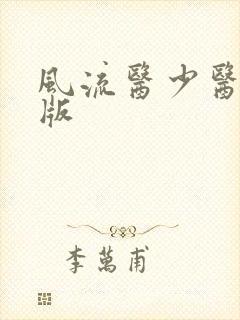 風流醫少醫
版
李萬甫